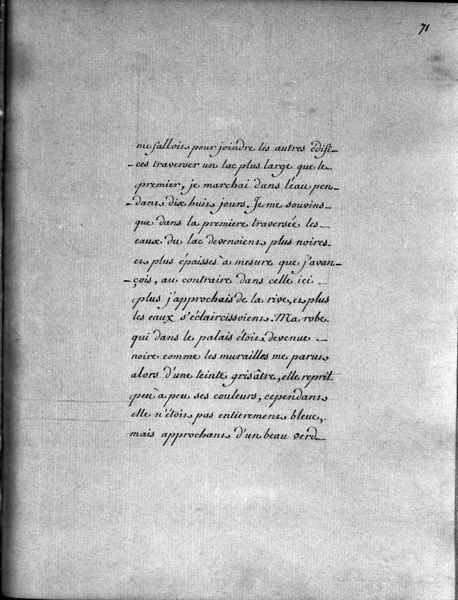 71
me falloit pour joindre les autres édifi-
-ces traverser un lac plus large que le
premier, je marchai dans l'eau pen-
-dant dix huit jours. Je me souvins
que dans la premiere traversée les
eaux du lac devenoient plus noires
et plus épaisses à mesure que j'avan-
-çois, au contraire dans celle ici
plus j'approchais de la rive, et plus
les eaux s'éclaircissoient. Ma robe
qui dans le palais étoit devenue
noire comme les murailles me parut
alors d'une teinte grisâtre, elle reprit
peu à peu ses couleurs, cependant
elle n'étoit pas entierement bleue,
mais approchant d'un beau verd.